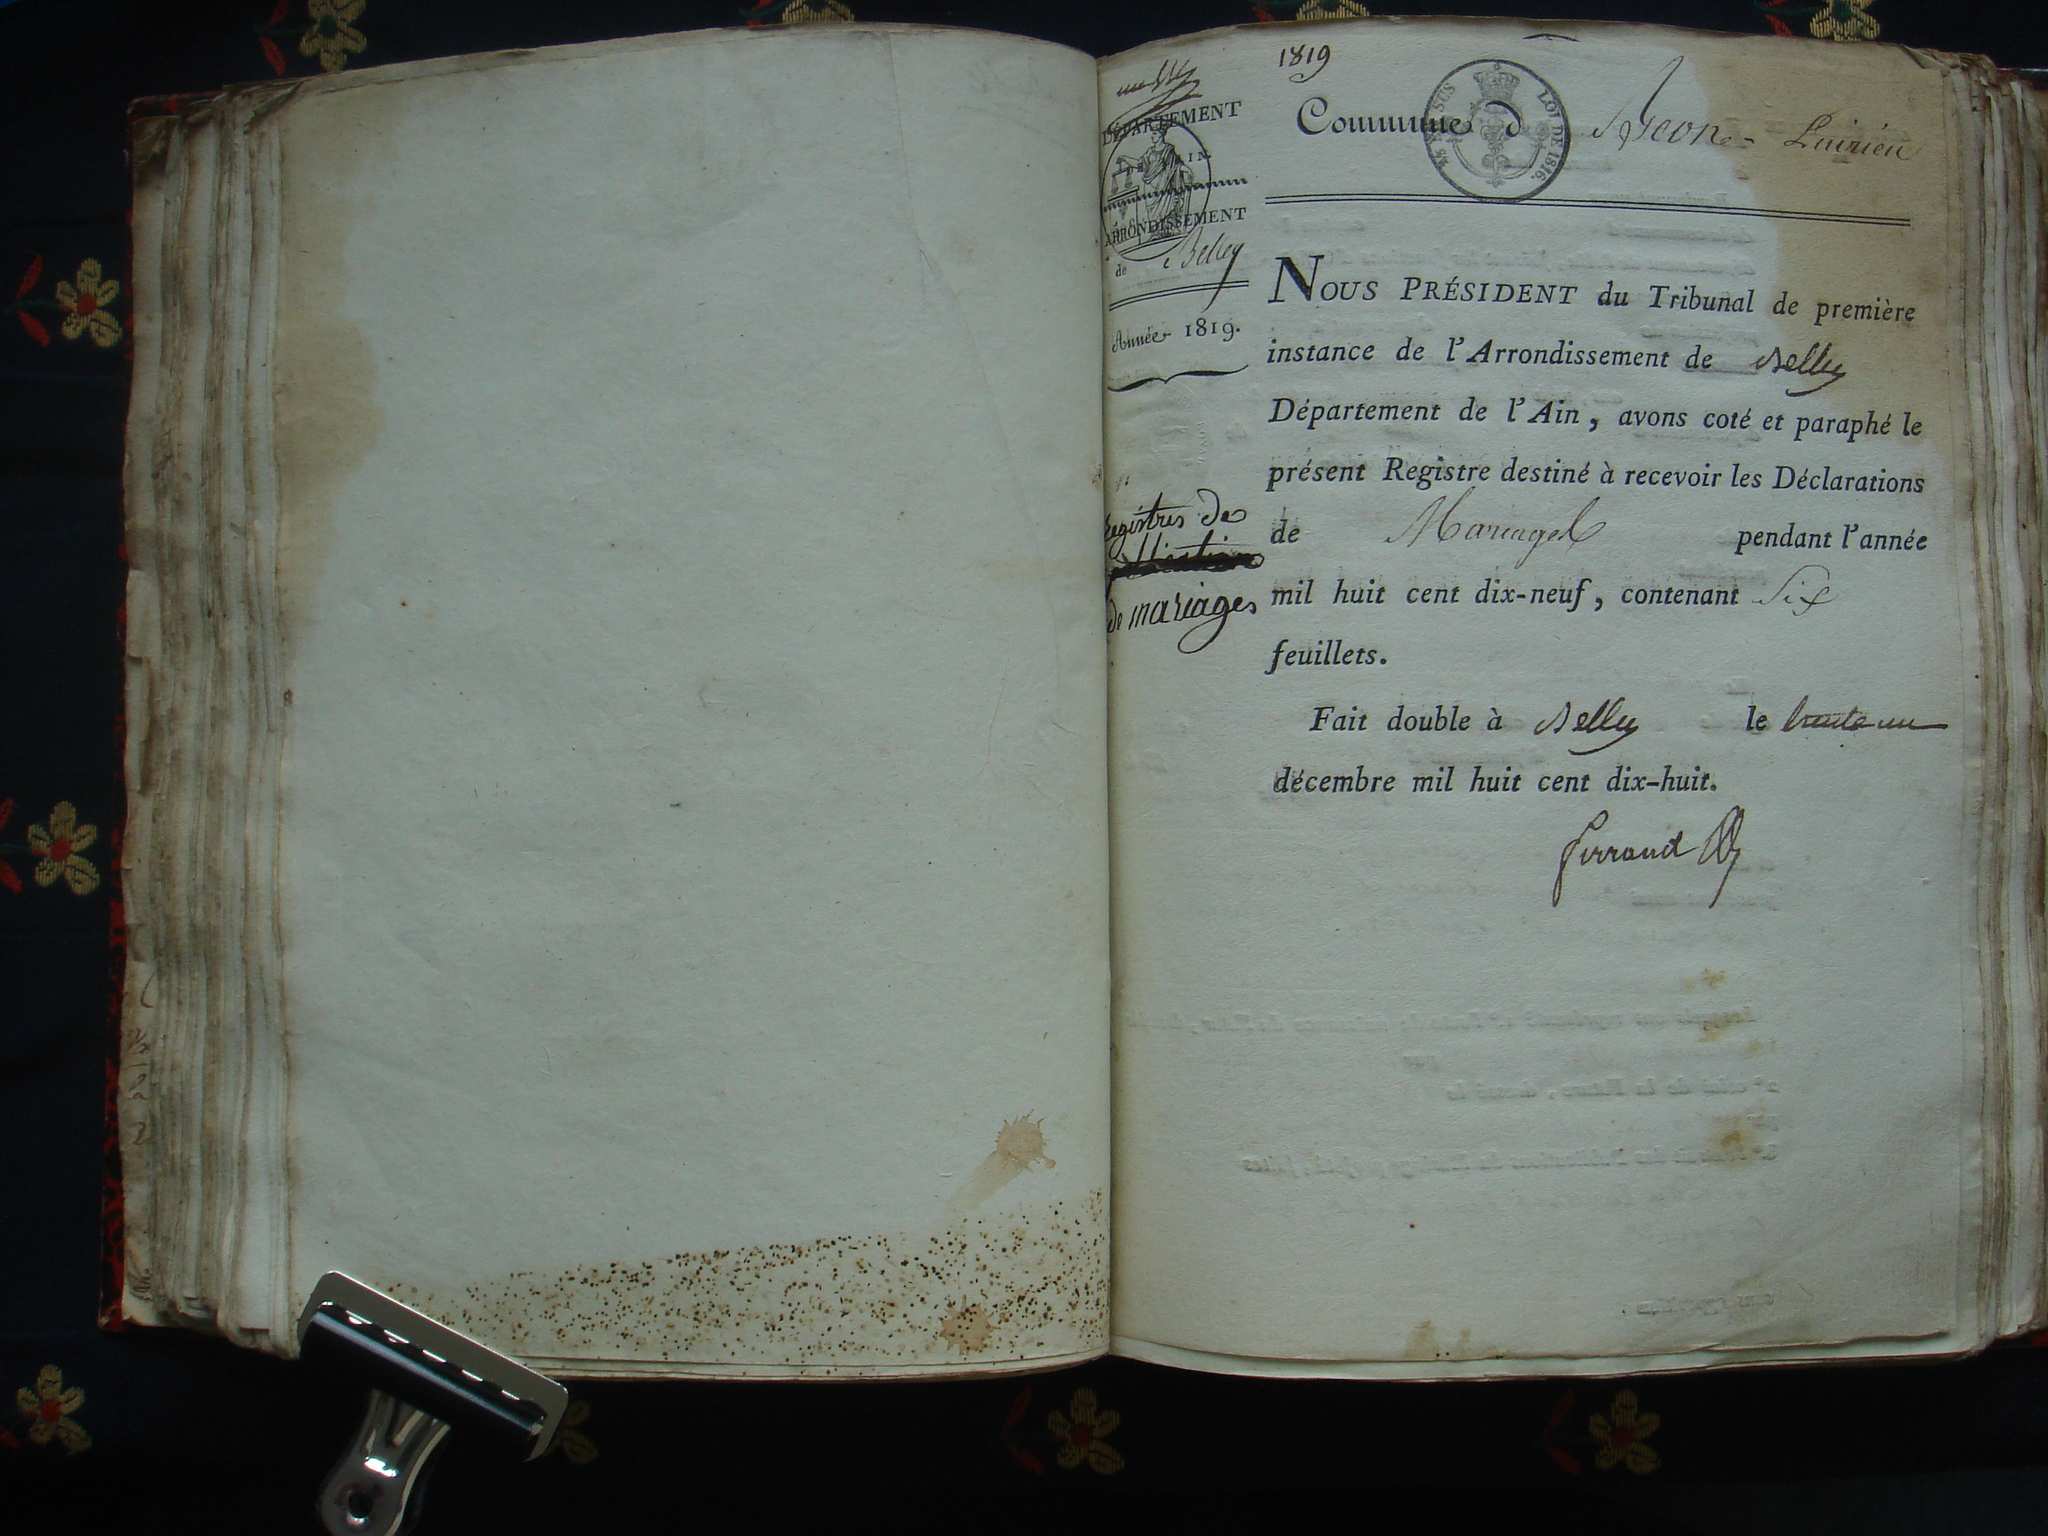 1819
DÉPARTEMENT
DE L'AIN.
ARRONDISSEMENT
de Belley
Année 1819.
registres de
de mariages
Commune d Béon - Luirieu
25 EN SUS LOI DE 1816.
NOUS PRÉSIDENT du Tribunal de première
instance de l'Arrondissement de Belley
Département de l'Ain, avons coté et paraphé le
présent Registre destiné à recevoir les Déclarations
de Mariages pendant l'année
mil huit cent dix-neuf, contenant Six
feuillets.
Fait double à Belley le trente un
décembre mil huit cent dix-huit.
ferrand